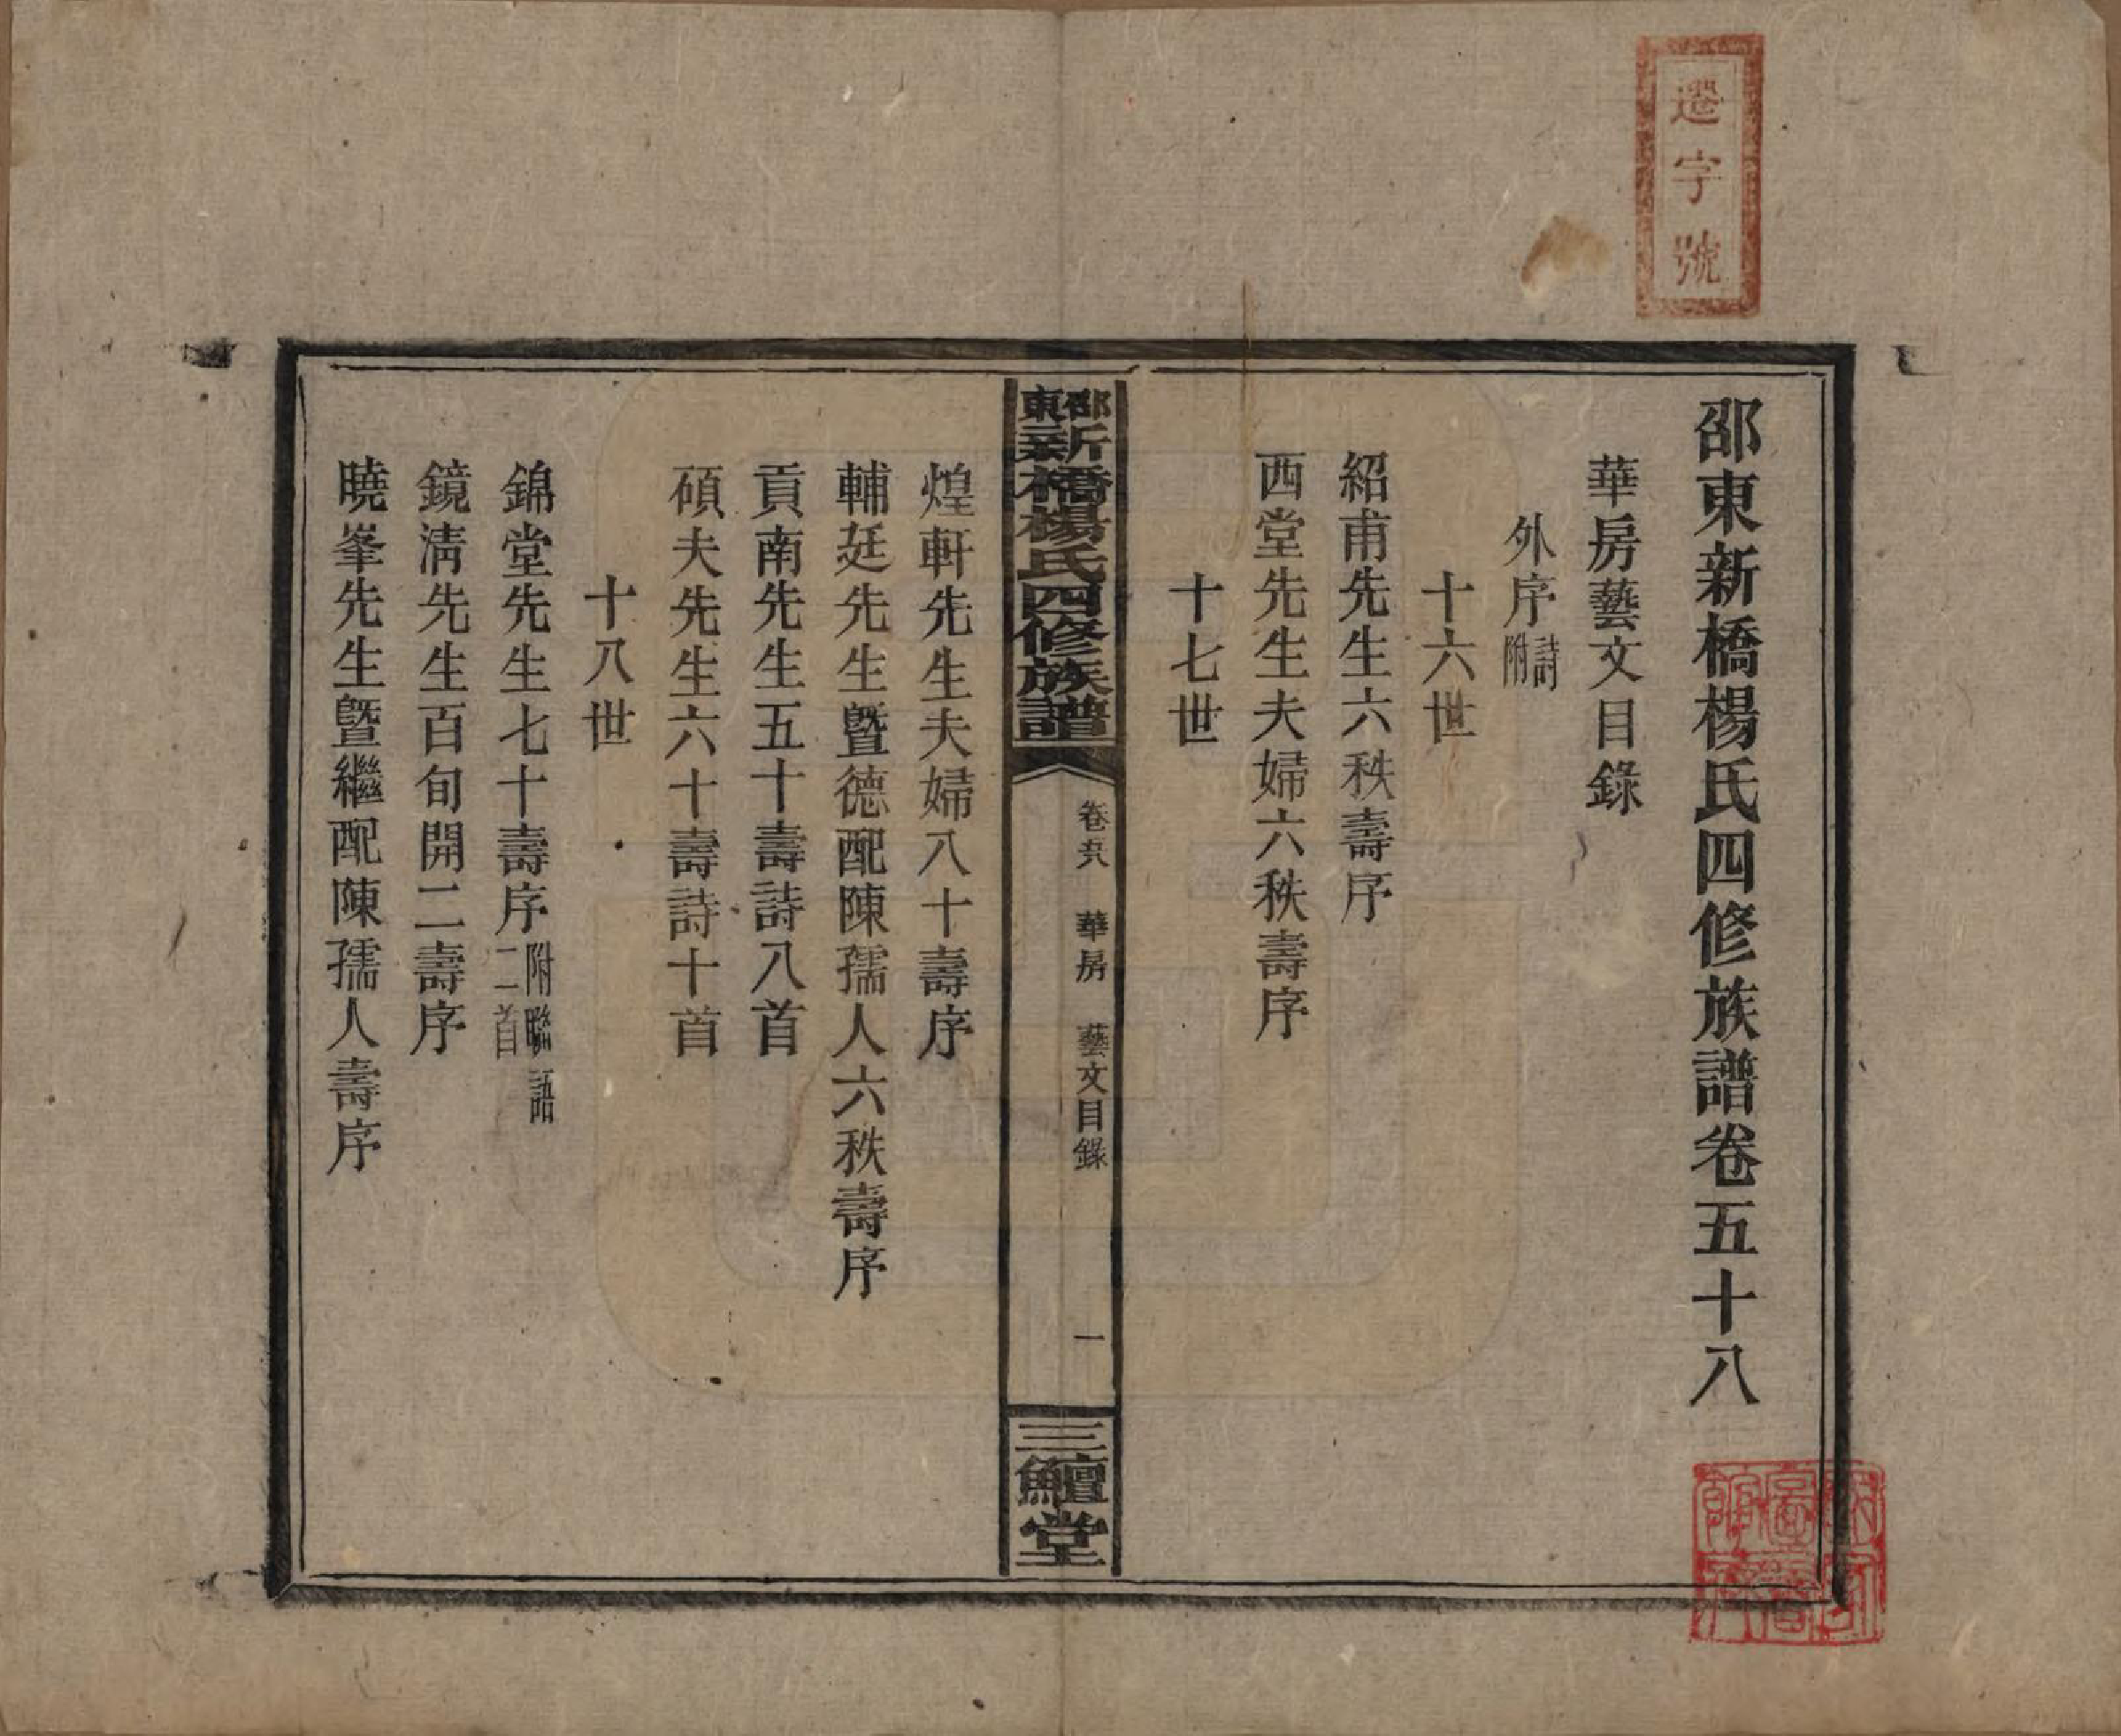 遷字號
邵東新橋楊氏四修族譜卷五十八
華房藝文目錄
外序詩附
十六世
紹甫先生六秩壽序
西堂先生夫婦六秩壽序
十七世
邵東新橋楊氏四修族譜 卷五八 華房 藝文目錄 一 三鱣堂
煌軒先生夫婦八十壽序
輔廷先生暨德配陳孺人六秩壽序
貢南先生五十壽詩八首
碩夫先生六十壽詩十首
十八世
錦堂先生七十壽序附聯語二首
鏡清先生百旬開二壽序
曉峯先生暨繼配陳孺人壽序